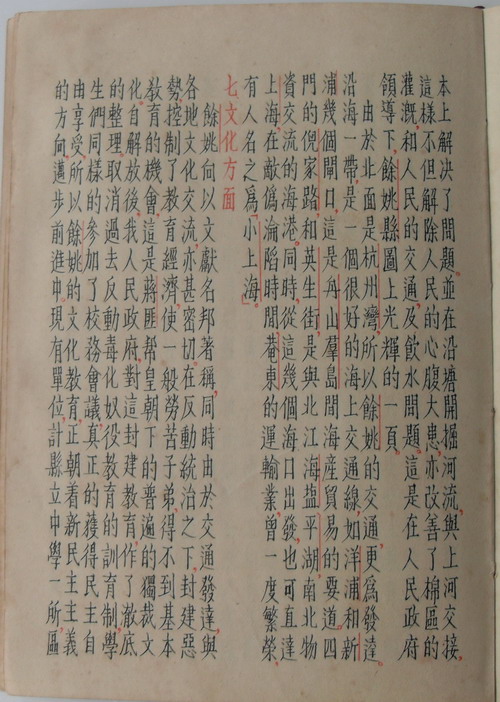 本上解決了問題。並在沿塘開掘河流,與上河交接,
這樣不但解除人民的心腹大患,亦改善了棉區的
灌溉,和人民的交通,及飲水問題。這是在人民政府
領導下,餘姚縣圖上光輝的一頁。
由於北面是杭州灣,所以餘姚的交通更爲發達。
沿海一帶,是一個很好的海上交通線,如洋浦和新
浦幾個閘口,這是舟山羣島間海產貿易的要道。四
門的倪家路,和英生街,是與北江海盐平湖,南北物
資交流的海港。同時,從這幾個海口出發,也可直達
上海在敵僞淪陷時間菴東的運輸業,曾一度繁榮,
有人名之爲「小上海」。
七文化方面
餘姚向以文獻名邦著稱,同時由於交通發達,與
各地文化交流,亦甚密切。在反動統治之下,封建惡
勢控制了教育經濟,使一般勞苦子弟,得不到基本
教育的機會,這是蔣匪幫皇朝下的普遍的獨裁文
化。自解放後,我人民政府對這封建教育,作了澈底
的整理,取消過去反動毒化奴役教育的訓育制,學
生們同樣的參加了校務會議,真正的獲得民主自
由享受,所以餘姚的文化教育,正朝着新民主主義
的方向,邁步前進中。現有單位,計縣立中學一所,區